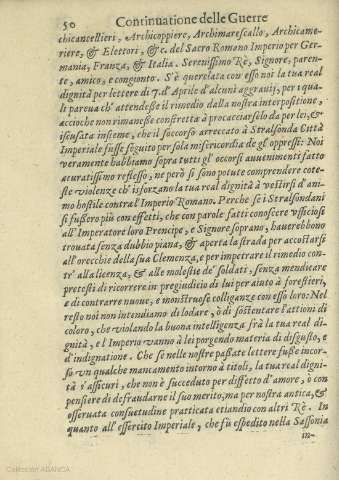 50 Continuatione delle Guerre
chicancellieri, Archicoppiere, Archimarescallo, Archicame-
riere, & Elettori, &c. del Sacro Romano Imperio per Ger-
mania, Franza, & Italia. Serenissimo Rè, Signore, paren-
te, amico, e congionto. S'è querelata con esso noi la tua real
dignità per lettere di 7. d'Aprile d'alcuni aggrauij, per i qua
li pareua ch'attendesse il rimedio dalla nostra interpositione,
accioche non rimanesse constretta à procacciarselo da per lei, &
iscusata insieme, che il soccorso arreccato à Stralsonda Città
Imperiale fusse seguito per sola misericordia de gl'oppressi: Noi
veramente habbiamo sopra tutti gl'occorsi auuenimenti fatto
accuratissimo reflesso, ne però si sono potute comprendere cote-
ste violenze ch'isforzano la tua real dignità à vestirsi d'ani-
mo hostile contra l'Imperio Romano. Perche se i Stralsondani
si fussero più con effetti, che con parole fatti conoscere vfficiosi
all'Imperatore loro Prencipe, e Signore soprano, hauerebbono
trouata senza dubbio piana, & aperta la strada per accostarsi
all'orecchie della sua Clemenza, e per impetrare il rimedio con-
tr'alla licenza, & alle molestie de' soldati, senza mendicare
pretesti di ricorrere in pregiudicio di lui per aiuto à forestieri,
e di contrarre nuoue, e monstruose colliganze con esso loro: Nel
resto noi non intendiamo di lodare, ò di sostentare l'attioni di
coloro, che violando la buona intelligenza frà la tua real di-
gnità, e l'Imperio vanno à lei porgendo materia di disgusto, e
d'indignatione. Che se nelle nostre passate lettere fusse incor-
so vn qualche mancamento intorno à titoli, la tua real digni-
tà s'assicuri, che non è succeduto per diffetto d'amore, ò con
pensiere di defraudarne il suo merito, ma per nostra antica, &
osseruata consuetudine pratticata etiandio con altri Rè. In
quanto all'essercito Imperiale, che fù espedito nella Sassonia
in-
Colección ABANCA